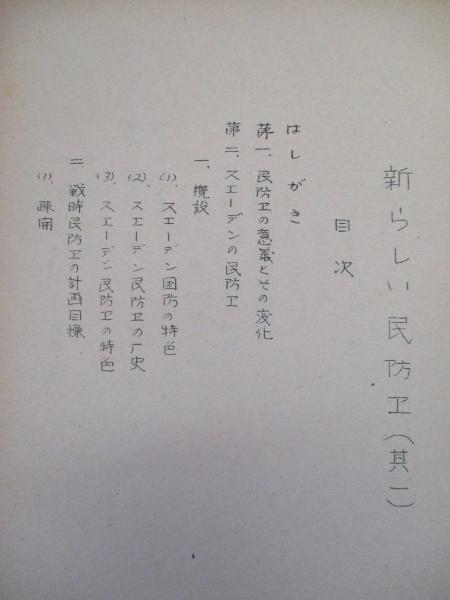 新らしい民防ヱ(其一)
目次
はしがき
第一、民防ヱの意義とその変化
第二、スエーデンの民防ヱ
一、概説
(1)、スエーデン国防の特色
(2)、スエーデン民防ヱの厂史
(3)、スエーデン民防ヱの特色
二 戦時民防ヱの計画目標
(1)、疎開